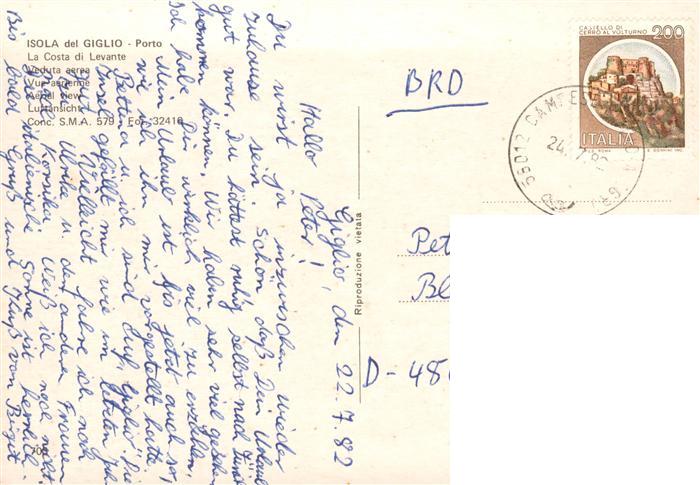 ISOLA del GIGLIO - Porto
La Costa di Levante
Veduta aerea
Vue aérienne
Aerial view
Luftansicht
Conc. S.M.A. 579 - Fot. 32416
Giglio, den 22-7.82
Hallo Peter!
Du wirst ja inzwischen wieder
zuhause sein. Schön daß Dein Urlaub
gut war. Du hättest ruhig selbst nach
kommen können. Wir haben sehr viel gesehen
Ich habe Dir wirklich viel zu erzählen,
Mein Urlaub ist bis jetzt auch so,
wie ich ihn mir vorgestellt hatte.
Bettina u. ich sind auf "Giglio", die
Insel gefällt mir wie im letzten
gut. Vielleicht fahre ich noch
Ulrike u. den anderen Frauen
nach Korsika. Weiß ich noch nicht.
Die italienische Sonne ist herrlich.
Bis bald Gruß und Kuß von Birgit
Riproduzione vietata
CASTELLO DI
CERRO AL VOLTURNO
200
ITALIA
58012 CAMPESE
24.7.82
BRD
Pet
Bl
D-48